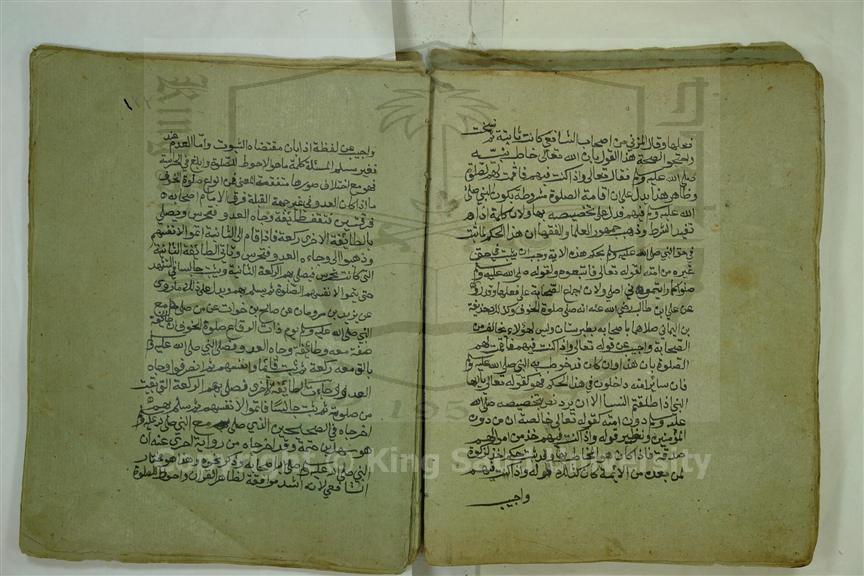 فعلها وقال المزني من اصحاب الشافعي كانت ثابتة ثم نسخت
واحتج لصحة هذا القول بان الله تعالى خاطب نبيه
صلى الله عليه وسلم فقال تعالى واذا كنت فيهم فاقمت لهم الصلوة
وظاهر هذا يدل على ان اقامة الصلوة مشروطة بكون النبي صلى
الله عليه وسلم فيهم فدل على تخصيصه بها ولان كلمة اذا
تفيد الشرط وذهب جمهور العلماء والفقهاء ان هذا الحكم لما ثبت
في حق النبي صلى الله عليه وسلم بحكم هذه الاية وجب ان يثبت في حق
غيره من امته لقوله تعالى فاتبعوه ولقوله صلى الله عليه وسلم
صلوا كما رايتموني اصلي ولان اجماع الصحابة على فعلها وقد روي
عن علي بن ابي طالب رضي الله عنه انه صلى صلوة الخوف وكذلك حذيفة
بن اليماني صلاها باصحابه بطبرستان وليس لهؤلاء مخالف من
الصحابة واجيب عن قوله تعالى واذا كنت فيهم فاقمت لهم
الصلوة بان هذا وان كان قد خوطب به النبي صلى الله عليه وسلم
فان سائر امته داخلون في هذا الحكم فهو لقوله تعالى يا ايها
النبي اذا طلقتم النساء الا ان يرد نص بتخصيصه صلى الله
عليه وسلم دون امته لقوله تعالى خالصة لك من دون
المؤمنين ونظير قوله واذا كنت فيهم خذ من اموالهم
صدقة فاذا كان هو المخاطب بها وقد ثبت حكم اخذ الزكوة
لمن بعده من الائمة كان كذلك قوله واذا كنت فيهم
واجيب
واجيب عن لفظة اذا بان مقتضاه الثبوت واما العدم
فغير مسلم المسئلة كلمة ما هو الاحوط للصلوة وابلغ في الحراسة
فهو مع اختلاف صورها متفقة المعنى فمن انواع صلوة الخوف
ما اذا كان العدو في غير جهة القبلة فرق الامام اصحابه
فرقتين فتقف طائفة وجاه العدو فتحرس ويصلي
بالطائفة الاخرى ركعة فاذا قام الى الثانية اتموا لانفسهم
وذهبوا الى وجاه العدو فتحرس وتاتي الطائفة الثانية
التي كانت تحرس فيصلي بهم الركعة الثانية ويثبت جالسا في التشهد
حتى يتموا لانفسهم الصلوة ثم يسلم بهم ويدل على ذلك ما روي
عن يزيد بن رومان عن صالح بن خوات عن من صلى مع
النبي صلى الله عليه وسلم يوم ذات الرقاع صلوة الخوف ان طائفة
صفت معه وطائفة وجاه العدو فصلى النبي صلى الله عليه
بالتي معه ركعة ثم ثبت قائما واتموا لانفسهم ثم انصرفوا وجاه
العدو وجاءت الطائفة الاخرى فصلى بهم الركعة التي بقيت
من صلوته ثم ثبت جالسا فاتموا لانفسهم ثم سلم بهم
اخرجاه في الصحيحين الذي صلى مع النبي صلى الله عليه
هو سهل بن ابي حثمة وقد اخرجاه من رواية اخرى عنه ان
النبي صلى الله عليه وسلم صلى باصحابه وذكر نحوه وهذا هو مختار
الشافعي لانه اشد موافقة لظاهر القرآن واحوط للصلوة
Copyright © King Saud University